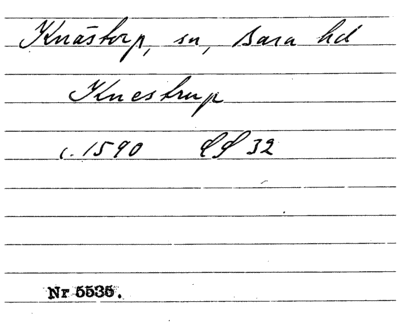 Knästorp, sn, Bara hd
Knestrup
c. 1590 LS 32
Nr 5535.